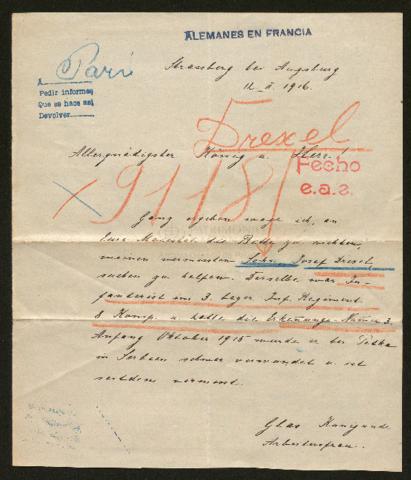 ALEMANES EN FRANCIA
A Pari
Pedir informes
Que se hace así
Devolver
Strassberg bei Augsburg
12. II. 1916.
Drexel
Allergnädigster König u. Herr.
Fecho
e.a.s.
x 9118
Ganz ergeben möge ich, an
Eure Majestät die Bitte zu richten,
meinen vermissten Sohn Josef Drexel
suchen zu helfen. Derselbe war In-
fanterist im 3. bayer. Inf. Regiment
8 Komp. u. hatte die Erkennungs-Nummer 3.
Anfang Oktober 1915 wurde er bei
in Serbien schwer verwundet u. ist
seitdem vermisst.
Kunigunde
Arbeitersfrau.